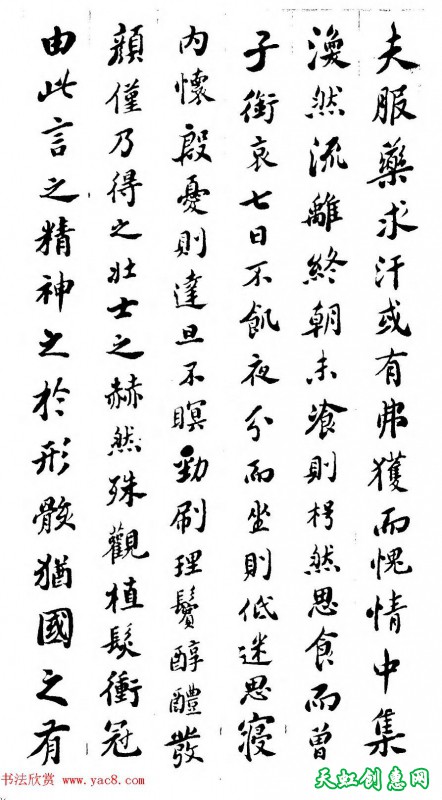 夫服藥求汗或有弗獲而愧情中集
渙然流離終朝未飡則枵然思食而曾
子銜哀七日不飢夜分而坐則低迷思寢
內懷殷憂則達旦不瞑勁刷理鬢醇醴發
顏僅乃得之壯士之赫然殊觀植髮衝冠
由此言之精神之於形骸猶國之有
书法欣赏 www.yac8.com
天虹创惠网